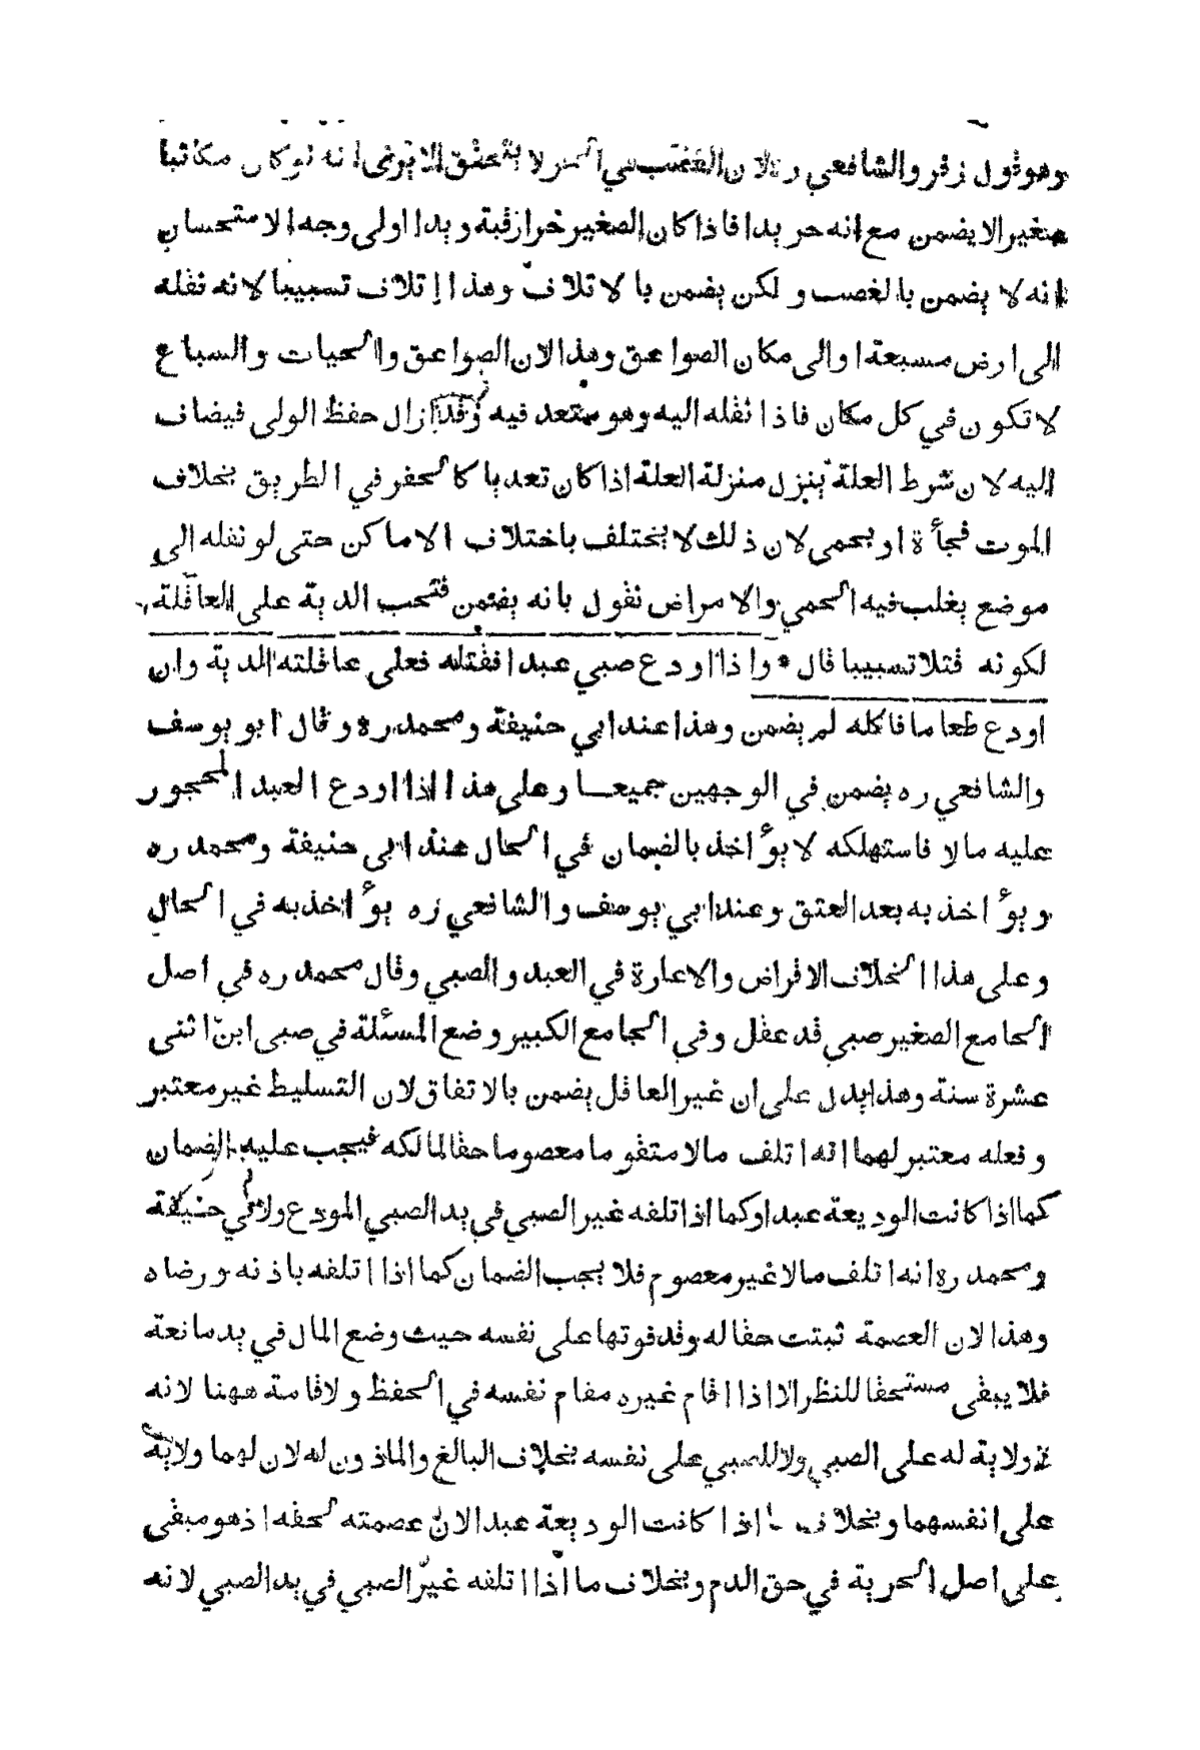 وهو قول زفر والشافعي ره لان الغصب في الحر لا يتحقق الا يرى انه لو كان مكاتبا
صغير الا يضمن مع انه حر يدا فاذا كان الصغير حرا رقبة ويدا اولى وجه الاستحسان
انه لا يضمن بالغصب ولكن يضمن بالاتلاف وهذا اتلاف تسبيبا لانه نقله
الى ارض مسبعة او الى مكان الصواعق وهذا لان الصواعق والحيات والسباع
لا تكون في كل مكان فاذا نقله اليه وهو متعد فيه وقد ازال حفظ الولى فيضاف
اليه لان شرط العلة ينزل منزلة العلة اذا كان تعديا كالحفر في الطريق بخلاف
الموت فجأة او بحمى لان ذلك لا يختلف باختلاف الاماكن حتى لو نقله الى
موضع يغلب فيه الحمي والامراض نقول بانه يضمن فتجب الدية على العاقلة
لكونه قتلا تسبيبا قال * واذا اودع صبي عبدا فقتله فعلى عاقلته الدية وان
اودع طعاما فاكله لم يضمن وهذا عند ابي حنيفة ومحمد ره وقال ابو يوسف
والشافعي ره يضمن في الوجهين جميعا وعلى هذا اذا اودع العبد المحجور
عليه مالا فاستهلكه لا يؤاخذ بالضمان في الحال عند ابي حنيفة ومحمد ره
ويؤاخذ به بعد العتق وعند ابي يوسف والشافعي ره يؤاخذ به في الحال
وعلى هذا الخلاف الاقراض والاعارة في العبد والصبي وقال محمد ره في اصل
الجامع الصغير صبي قد عقل وفي الجامع الكبير وضع المسئلة في صبى ابن اثنى
عشرة سنة وهذا يدل على ان غير العاقل يضمن بالاتفاق لان التسليط غير معتبر
وفعله معتبر لهما انه اتلف مالا متقوما معصوما حقا لمالكه فيجب عليه الضمان
كما اذا كانت الوديعة عبدا وكما اذا تلفه غير الصبي في يد الصبي المودع ولابي حنيفة
ومحمد ره انه اتلف مالا غير معصوم فلا يجب الضمان كما اذا اتلفه باذنه ورضاه
وهذا لان العصمة ثبتت حقا له وقد فوتها على نفسه حيث وضع المال في يد مانعة
فلا يبقى مستحقا للنظر الا اذا اقام غيره مقام نفسه في الحفظ ولا قامة ههنا لانه
لا ولاية له على الصبي ولا للصبي على نفسه بخلاف البالغ والماذون له لان لهما ولاية
على انفسهما وبخلاف ما اذا كانت الوديعة عبدا لان عصمته لحقه اذ هو مبقى
على اصل الحرية في حق الدم وبخلاف ما اذا اتلفه غير الصبي في يد الصبي لانه